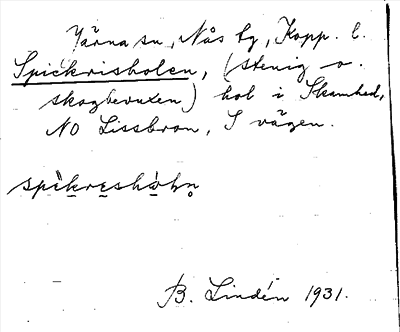 Järna sn, Nås tg, Kopp. l.
Spickrisholen, (stenig o.
skogbevuxen) hol i Skamhed,
NO Lissbron, S vägen.
spìkresho̩ln̥
B. Lindén 1931.